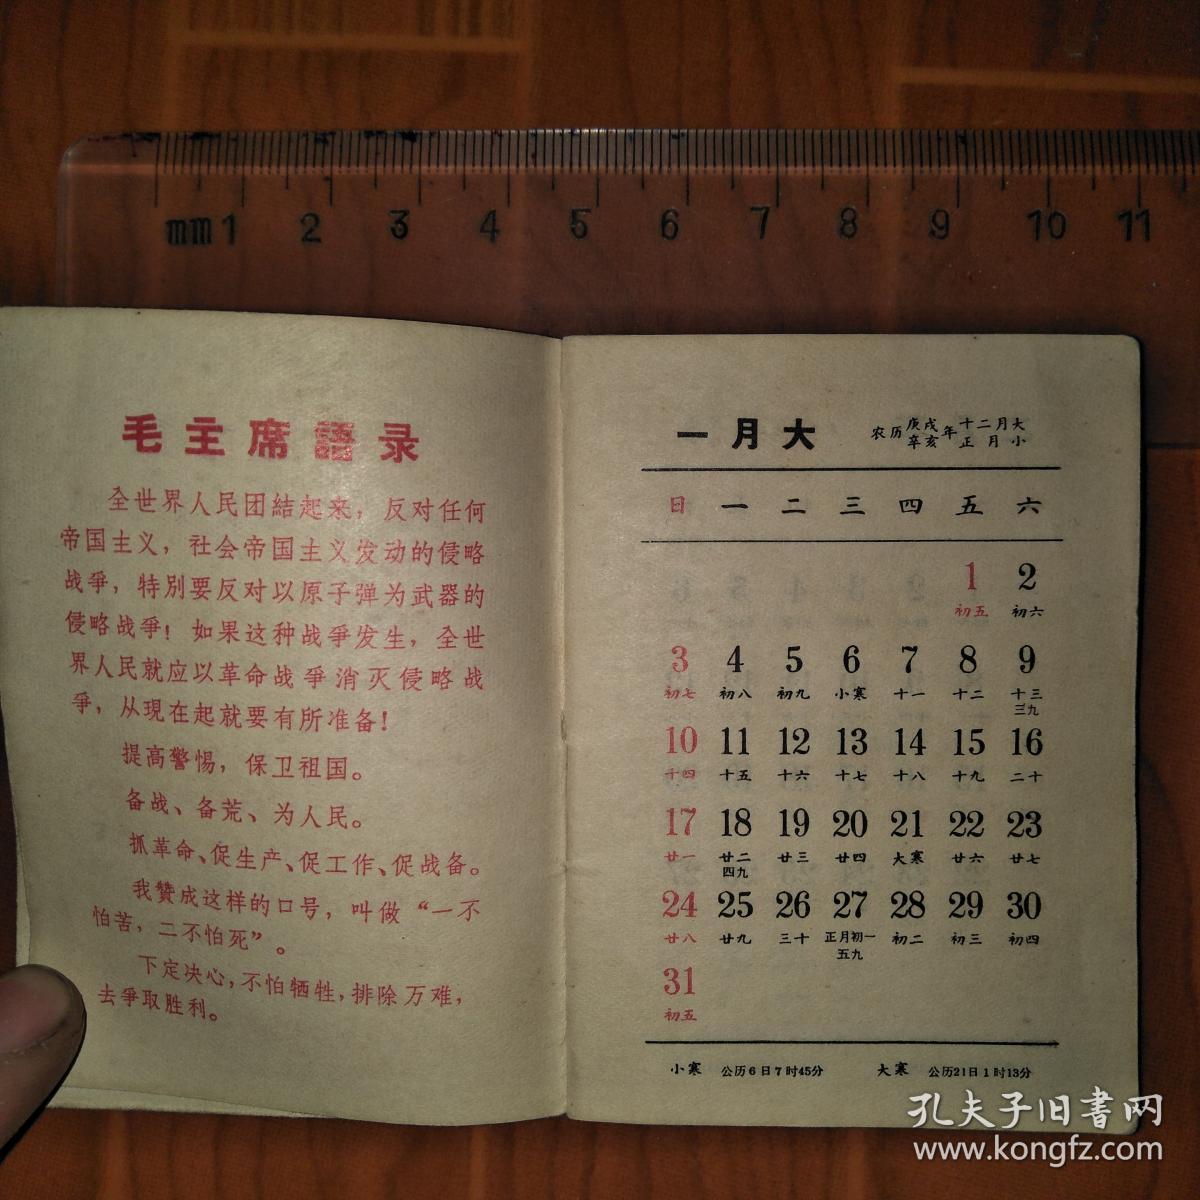 mm 1 2 3 4 5 6 7 8 9 10 11
毛主席語录
全世界人民团結起来，反对任何
帝国主义，社会帝国主义发动的侵略
战爭，特別要反对以原子弹为武器的
侵略战爭！如果这种战爭发生，全世
界人民就应以革命战爭消灭侵略战
爭，从現在起就要有所准备！
提高警惕，保卫祖国。
备战、备荒、为人民。
抓革命、促生产、促工作、促战备。
我贊成这样的口号，叫做“一不
怕苦，二不怕死”。
下定决心，不怕牺牲，排除万难，
去爭取胜利。
一月大
农历庚戌年十二月大
辛亥 正月小
日 一 二 三 四 五 六
1 2
初五 初六
3 4 5 6 7 8 9
初七 初八 初九 小寒 十一 十二 十三
三九
10 11 12 13 14 15 16
十四 十五 十六 十七 十八 十九 二十
17 18 19 20 21 22 23
廿一 廿二 廿三 廿四 大寒 廿六 廿七
四九
24 25 26 27 28 29 30
廿八 廿九 三十 正月初一 初二 初三 初四
五九
31
初五
小寒 公历6日7时45分 大寒 公历21日1时13分
孔夫子旧書网
www.kongfz.com